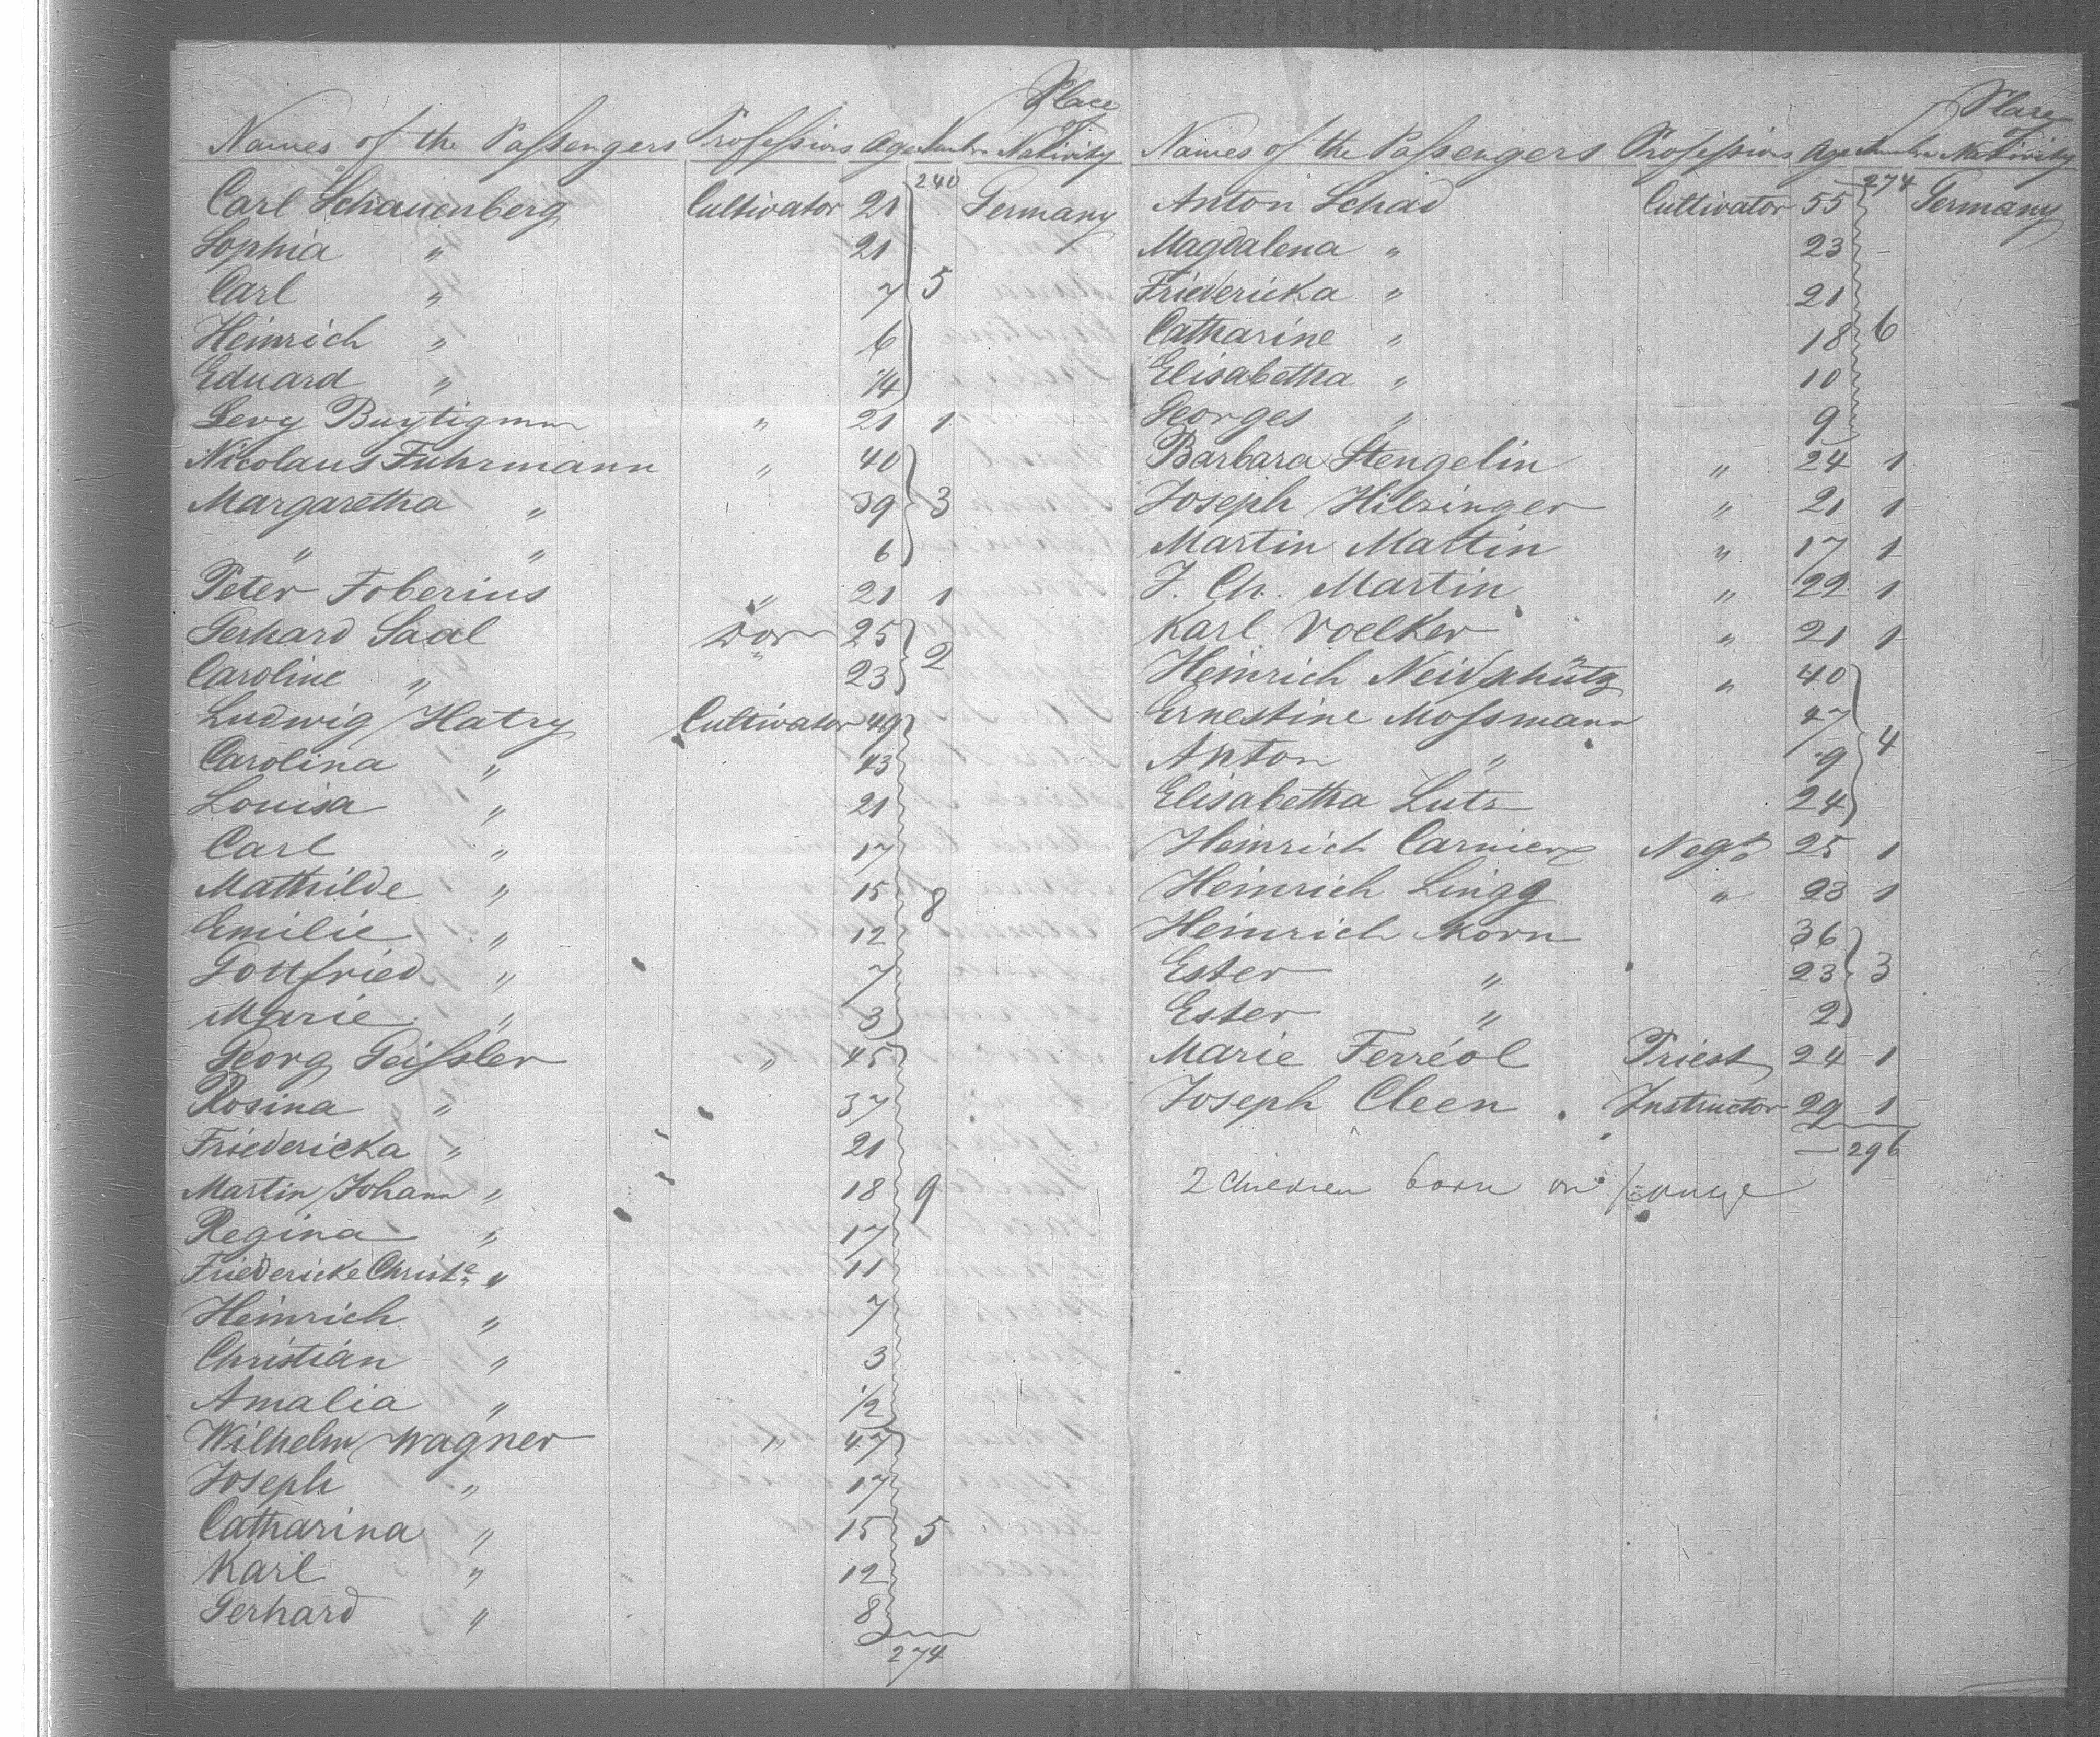 Names of the Passengers Professions Age Number Place of Nativity
240
Carl Schauenberg Cultivator 21 Germany
Sophia " 21
Carl " 7 5
Heinrich " 6
Eduard " 1/4
Levy " 21 1
Nicolaus Fuhrmann " 40
Margaretha " 39 3
" " 6
Peter Foberius " 21 1
Gerhard Saal 25
Caroline " 23 2
Ludwig Hatry Cultivator 49
Carolina " 43
Louisa " 21
Carl " 17
Mathilde " 15 8
Emilie " 12
Gottfried " 7
Marie " 3
Georg Geissler " 45
Rosina " 37
Friedericka " 21
Martin Johann " 18 9
Regina " 17
Friedericke Christe " 11
Heinrich " 7
Christian " 3
Amalia " 1/2
Wilhelm Wagner " 47
Joseph " 17
Catharina " 15 5
Karl " 12
Gerhard " 8
274
Names of the Passengers Professions Age Number Place of Nativity
274
Anton Schad Cultivator 55 Germany
Magdalena " 23
Friedericka " 21
Catharine " 18 6
Elisabetha " 10
Georges " 9
Barbara Stengelin " 24 1
Joseph Hilzinger " 21 1
Martin Mattin " 17 1
J. Ch. Martin " 22 1
Karl Voelker " 21 1
Heinrich Neidschütz " 40
Ernestine Mossmann 47
Anton " 9 4
Elisabetha Lutz 24
Heinrich Carnier Negt 25 1
Heinrich Lingg " 23 1
Heinrich Korn 36
Ester " 23 3
Ester " 2
Marie Ferréol Priest 24 1
Joseph Cleen Instructor 29 1
296
2 Children born on